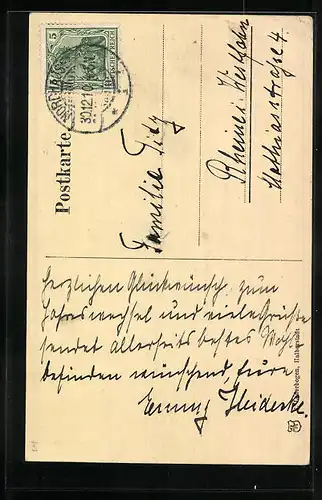 Postkarte
5
NORDHAUSEN
30.12.10
Familie
Rheine i. Westfalen
Mathiasstraße 4.
Herzlichen Glückwunsch zum
Jahreswechsel und viele Grüße
sendet allerseits bestes Wohl-
befinden wünschend Eure
Emmy Heidecke.
Halberstadt